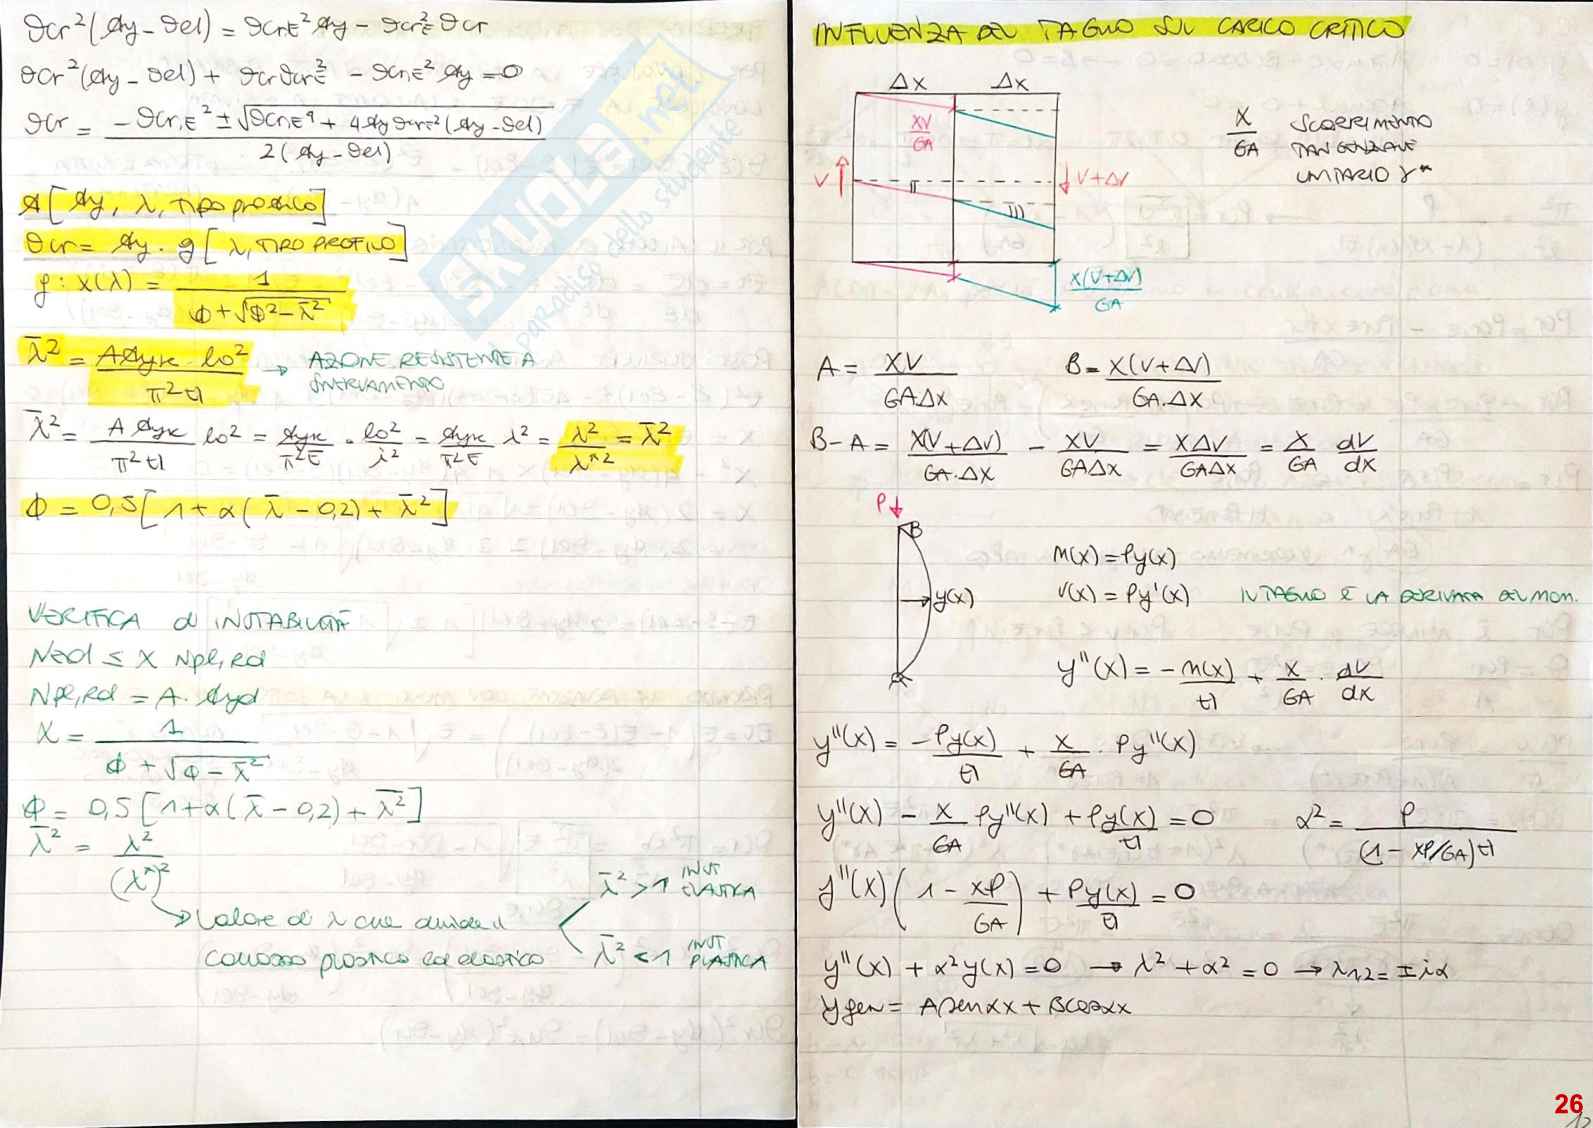 σcr²(σy - σel) = σcr,E² σy - σcr,E² σcr
σcr²(σy - σel) + σcr σcr,E² - σcr,E² σy = 0
σcr = (-σcr,E² ± √(σcr,E⁴ + 4σy σcr,E² (σy - σel))) / (2(σy - σel))
σcr = σy · g [λ, TIPO PROFILO]
g : χ(λ) = 1 / (Φ + √(Φ² - λ̄²))
λ̄² = A σyk · lo² / (π² EI) → AZIONE RESISTENTE A
SNERVAMENTO
λ̄² = (A σyk / π² EI) lo² = (σyk / π² E) · (lo² / i²) = (σyk / π² E) λ² = λ² / λ*² = λ̄²
Φ = 0,5 [1 + α(λ̄ - 0,2) + λ̄²]
VERIFICA di INSTABILITÀ
Ned ≤ χ Npl,Rd
Npl,Rd = A · σyd
χ = 1 / (Φ + √(Φ - λ̄²))
Φ = 0,5 [1 + α(λ̄ - 0,2) + λ̄²]
λ̄² = λ² / (λ*)²
→ Valore di λ che divide il
collasso plastico ed elastico
λ̄² > 1 INST ELASTICA
λ̄² < 1 INST PLASTICA
INFLUENZA DEL TAGLIO SUL CARICO CRITICO
Δx Δx
χV/GA
V
V+ΔV
II
III
χ(V+ΔV)/GA
χ/GA SCORRIMENTO
TANGENZIALE
UNITARIO γ*
A = χV / (GA·Δx) B = χ(V+ΔV) / (GA·Δx)
B - A = χ(V+ΔV) / (GA·Δx) - χV / (GAΔx) = χΔV / (GAΔx) = χ/GA dV/dx
P
B
y(x)
A
M(x) = Py(x)
V(x) = Py'(x) IL TAGLIO È LA DERIVATA DEL MOM.
y''(x) = - M(x)/EI + χ/GA · dV/dx
y''(x) = - Py(x)/EI + χ/GA · Py''(x)
y''(x) - χ/GA Py''(x) + Py(x)/EI = 0 α² = P / ((1 - χP/GA) EI)
y''(x) (1 - χP/GA) + Py(x)/EI = 0
y''(x) + α² y(x) = 0 → λ² + α² = 0 → λ1,2 = ± iα
y gen = A sen αx + B cos αx
SKUOLA.net
paradiso dello studente
26